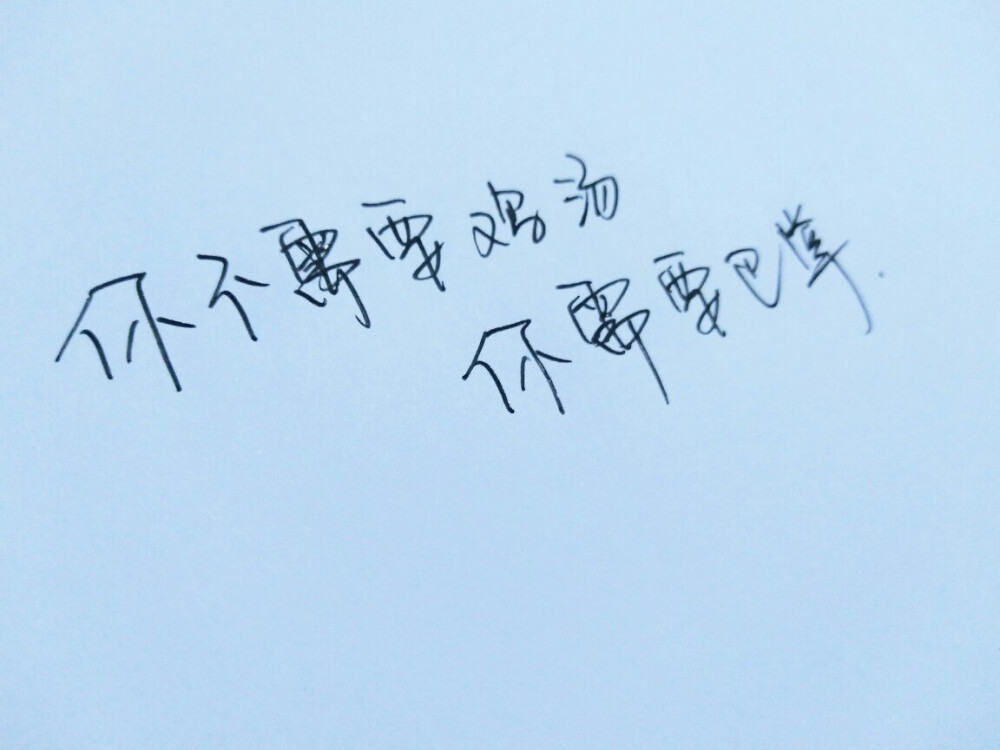 你不需要鸡汤
你需要巴掌.